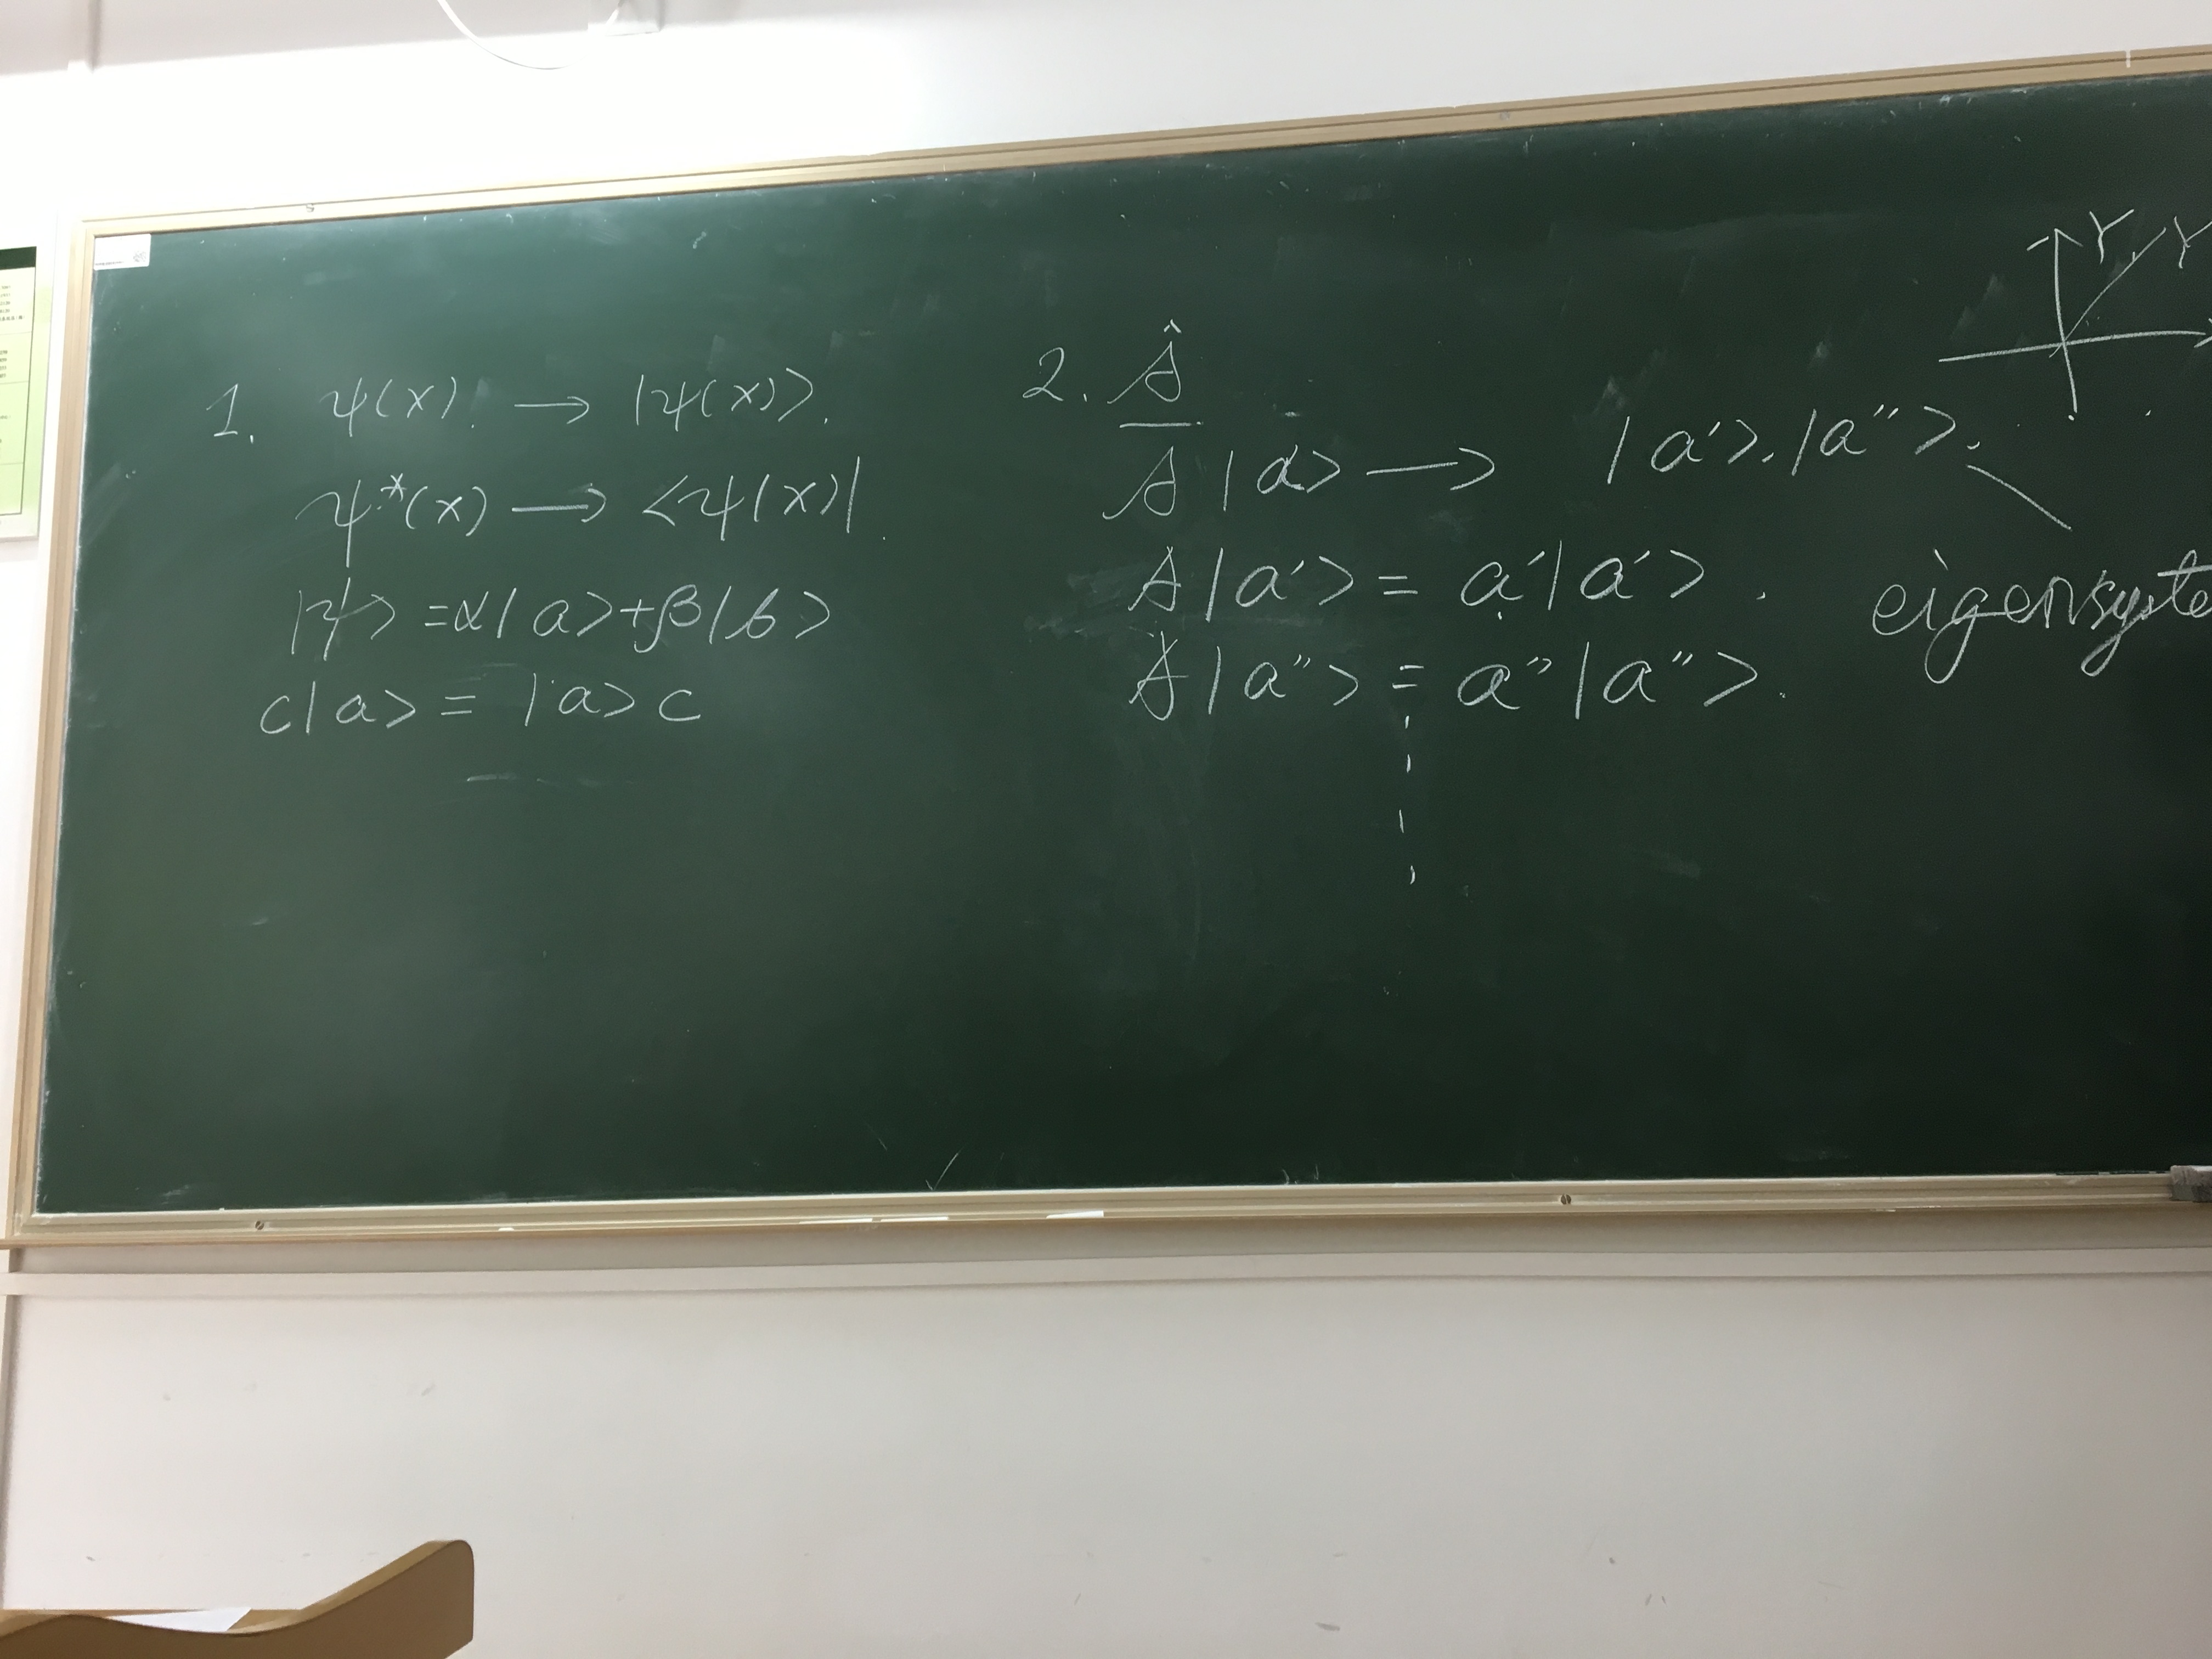 1. ψ(x) → |ψ(x)>.
ψ*(x) → <ψ(x)|.
|ψ> = α|a> + β|b>
c|a> = |a>c
2. Â
A|a> → |a'>, |a''>,
A|a'> = a'|a'>.
A|a''> = a''|a''>.
eigensyste
Y Y